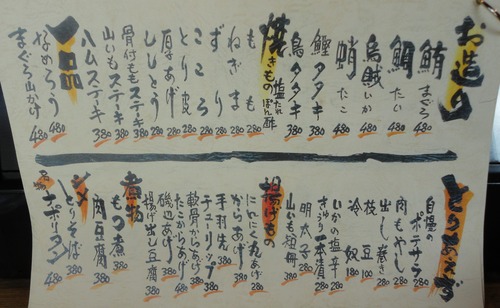 お造り
鮪 まぐろ 480
鯛 たい 480
烏賊 いか 480
蛸 たこ 380
鰹タタキ 380
鳥タタキ 380
焼きもの 塩 たれ ぽん酢
もも 280
ねぎま 280
ずり 280
こころ 280
とり皮 280
厚あげ 280
ししとう 280
骨付ももステーキ 380
山いもステーキ 380
ハムステーキ 380
一品
なめろう 480
まぐろ山かけ 480
とりあえず
自慢のポテサラ 280
肉もやし 380
出し巻き 380
枝豆 100
冷奴 180
いかの塩辛 380
きゅうり一本漬 280
明太子 280
山いも短冊 380
揚げもの
にんにく丸あげ 280
からあげ 380
チューリップ 380
手羽先 380
軟骨からあげ 380
たこからあげ 380
磯辺あげ 380
揚げ出し豆腐 380
煮物
もつ煮 380
肉豆腐 380
〆
とりそば 380
名物 ナポリタン 480